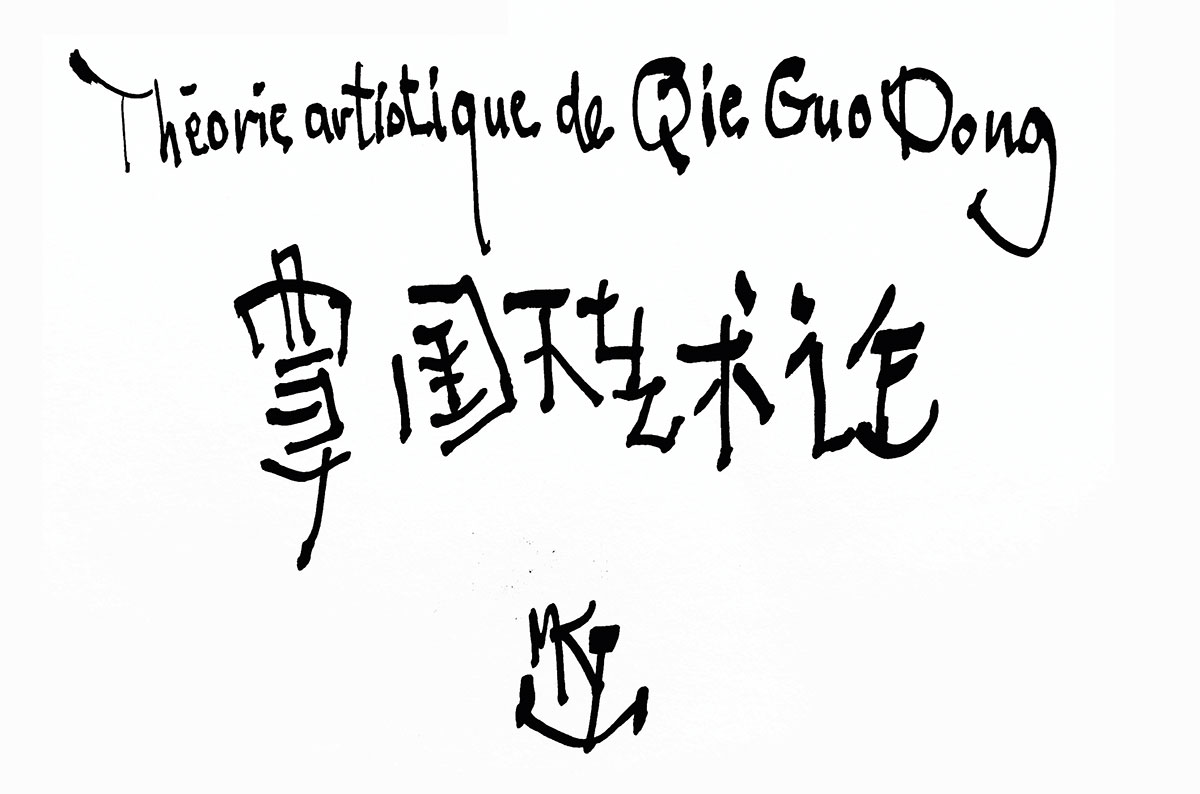 Théorie artistique de Qie Guo Dong
国 艺术论